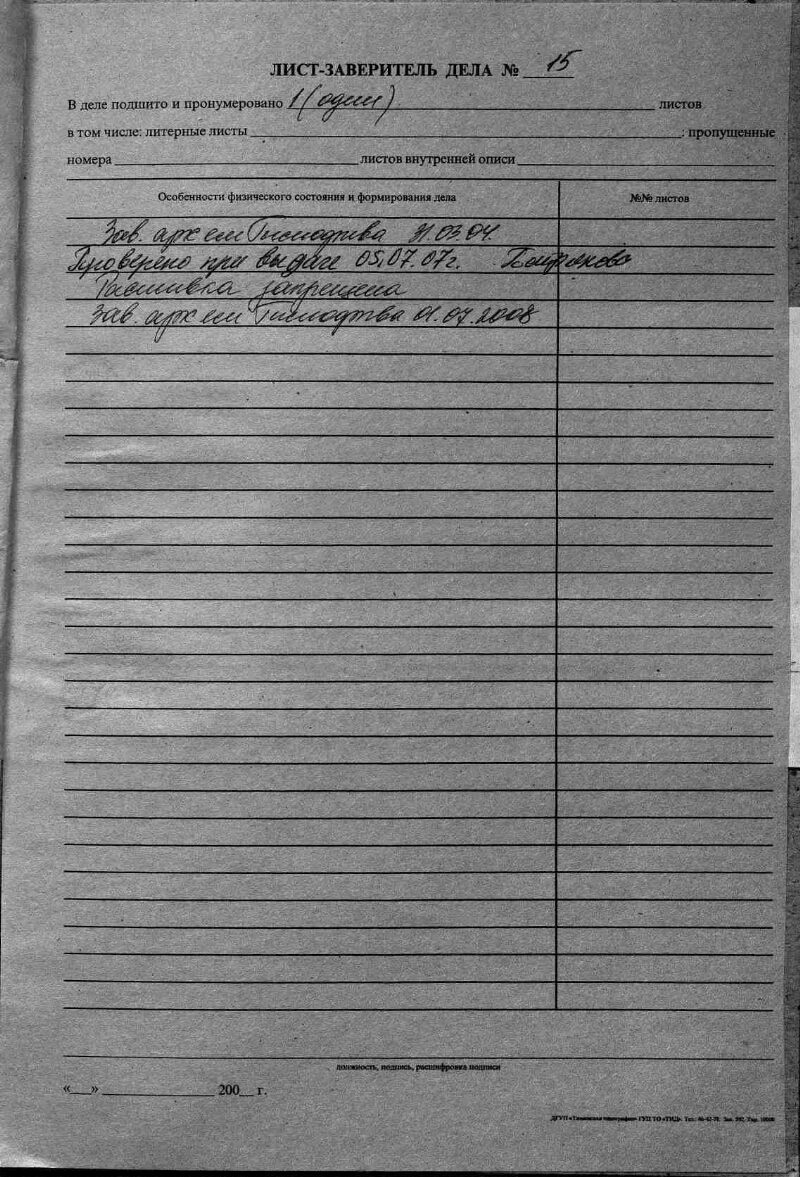 ЛИСТ-ЗАВЕРИТЕЛЬ ДЕЛА № 15
В деле подшито и пронумеровано 1 (один) листов
в том числе: литерные листы ; пропущенные
номера листов внутренней описи
Особенности физического состояния и формирования дела №№ листов
Зав. арх 31.03.04.
Проверено при выдаче 05.07.07г.
Расшивка запрещена
Зав. арх 01.07.2008
должность, подпись, расшифровка подписи
« » 200 г.